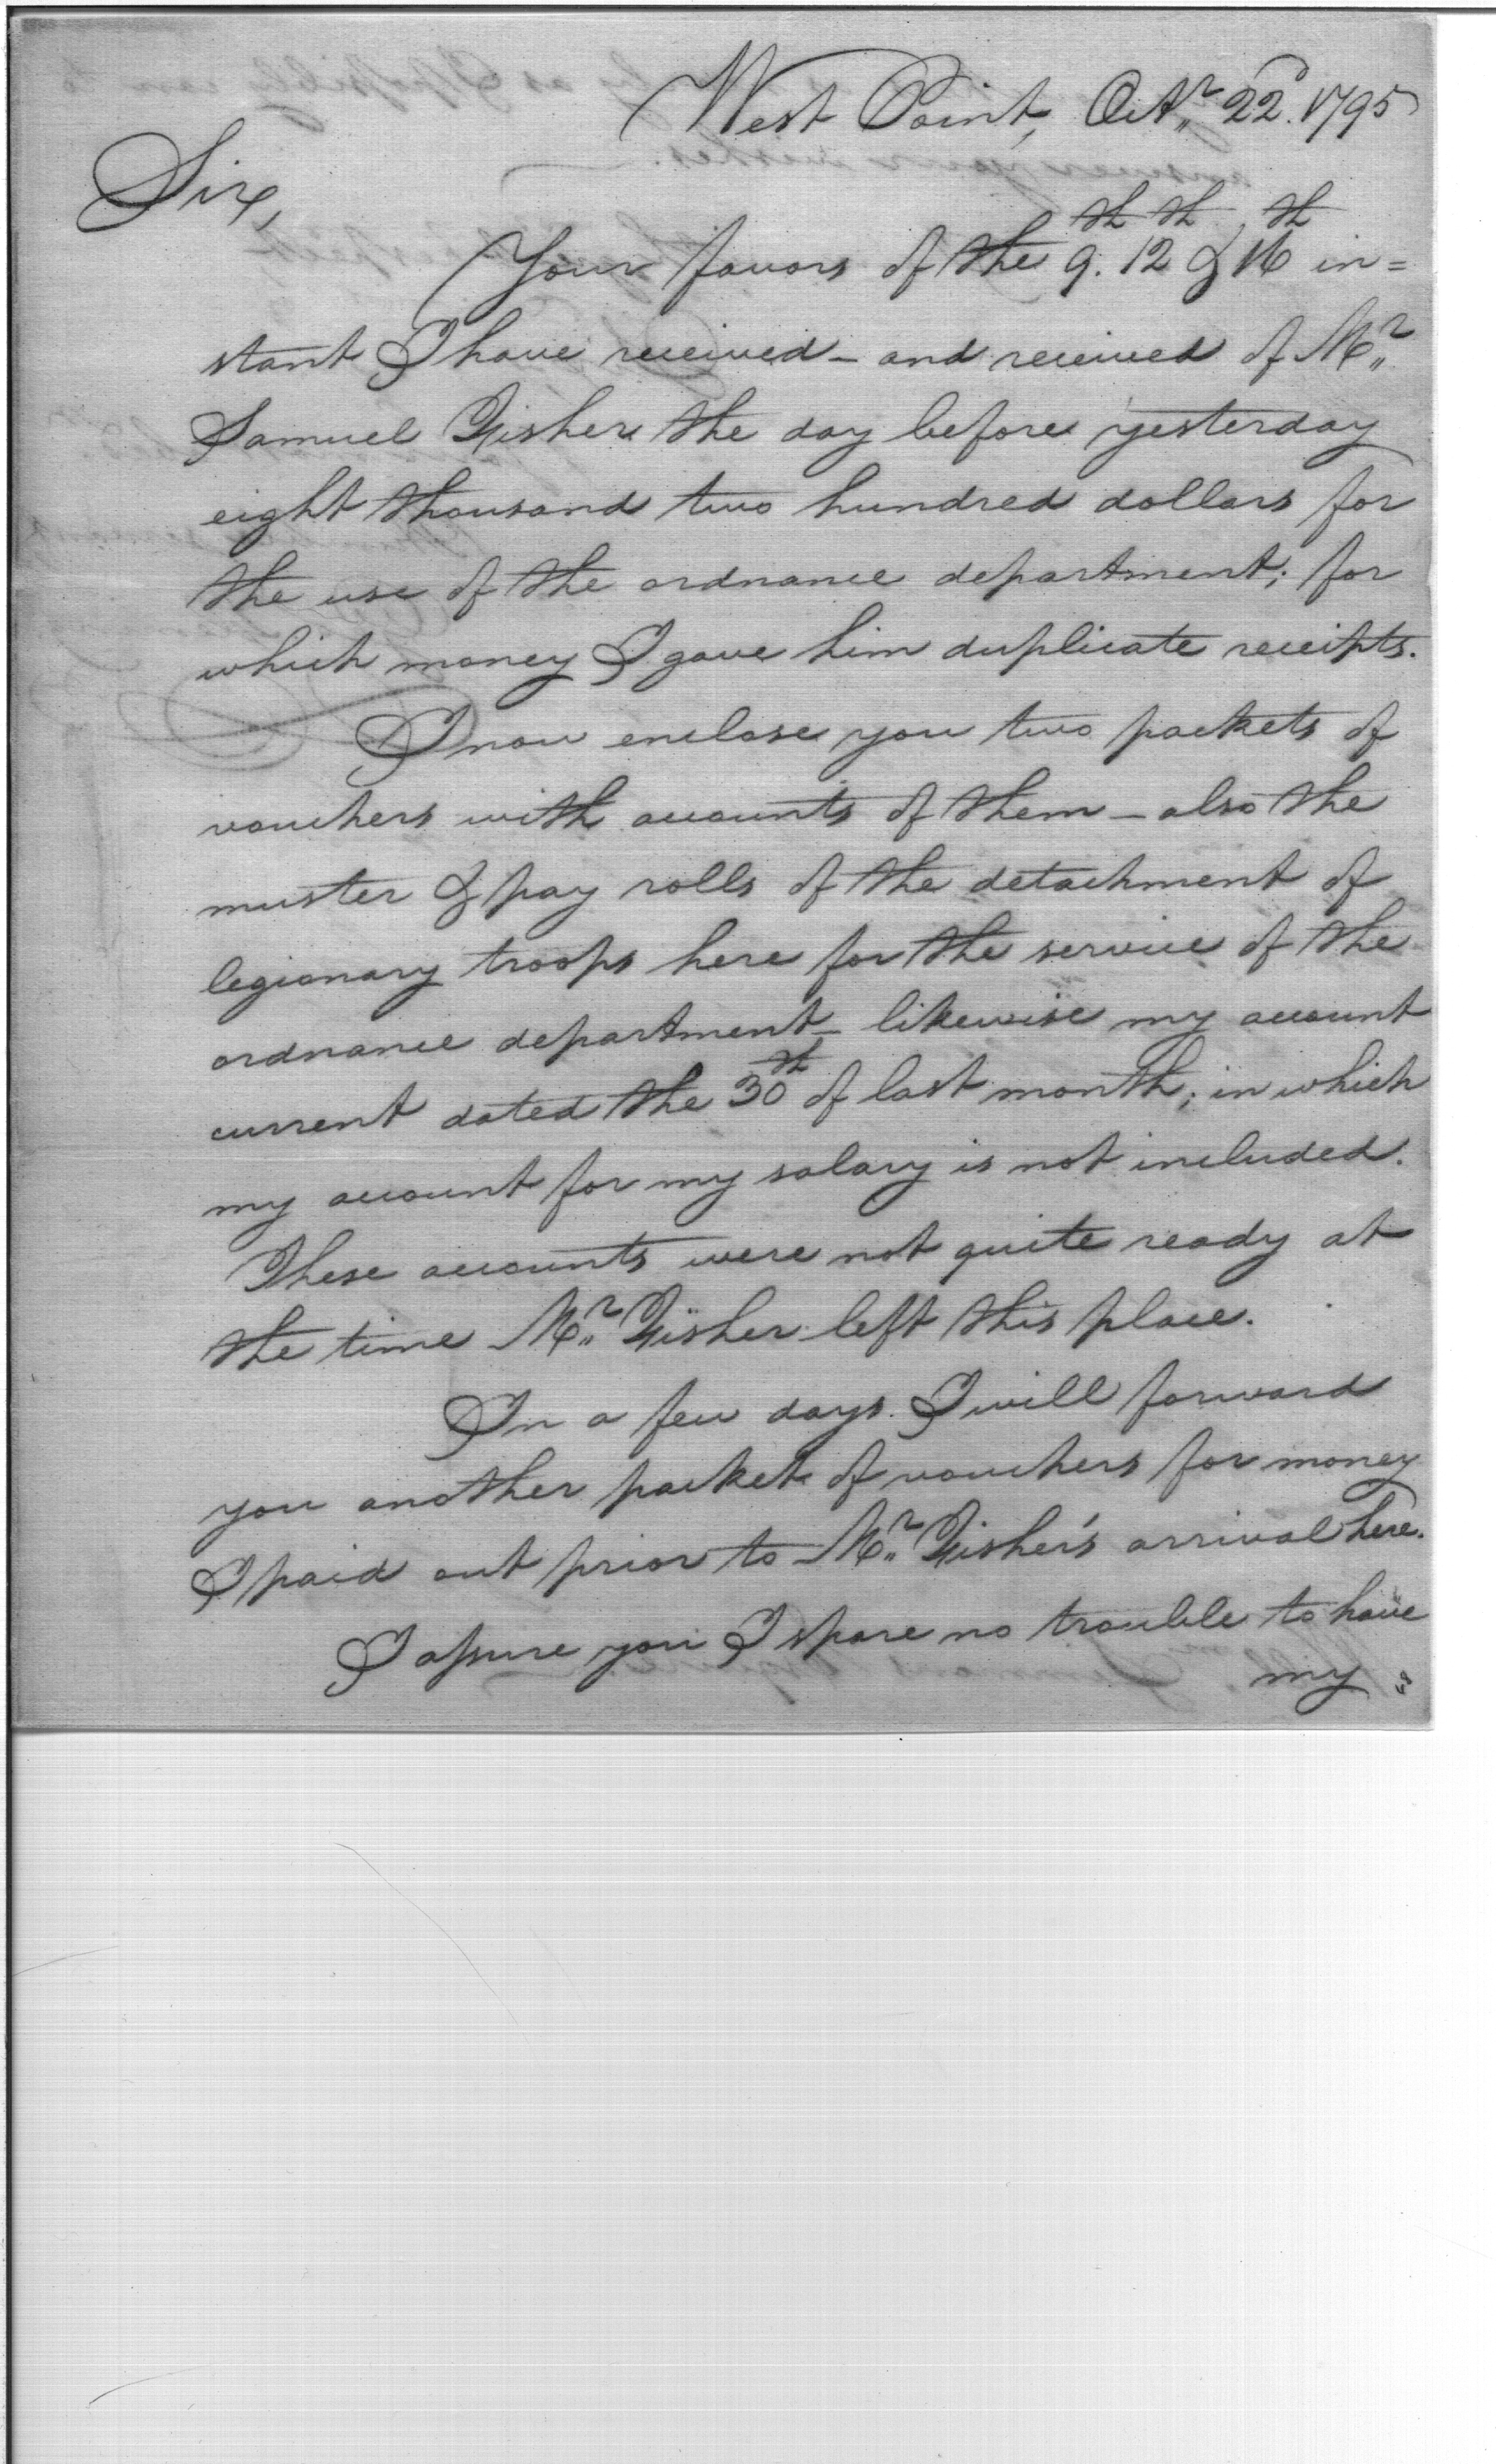 West Point, Octr. 22d. 1795
Sir,
Your favors of the 9th. 12th & 16th in=
stant I have received _ and received of Mr.
Samuel Fisher the day before yesterday
eight thousand two hundred dollars for
the use of the ordnance department; for
which money I gave him duplicate receipts.
I now enclose you two packets of
vouchers with accounts of them _ also the
muster & pay rolls of the detachment of
legionary troops here for the service of the
ordnance department _ likewise my account
current dated the 30th of last month; in which
my account for my salary is not included.
These accounts were not quite ready at
the time Mr. Fisher left this place.
In a few days I will forward
you another packet of vouchers for money
I paid out prior to Mr. Fisher's arrival here.
I assure you I spare no trouble to have
my